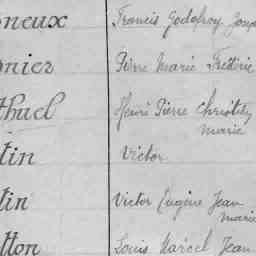 oneux Francis Godefroy Joseph
onier Pierre Marie Frédéric
thuel Henri Pierre Christily
marie
tin Victor
tin Victor Eugène Jean
marie
tton Louis Marcel Jean